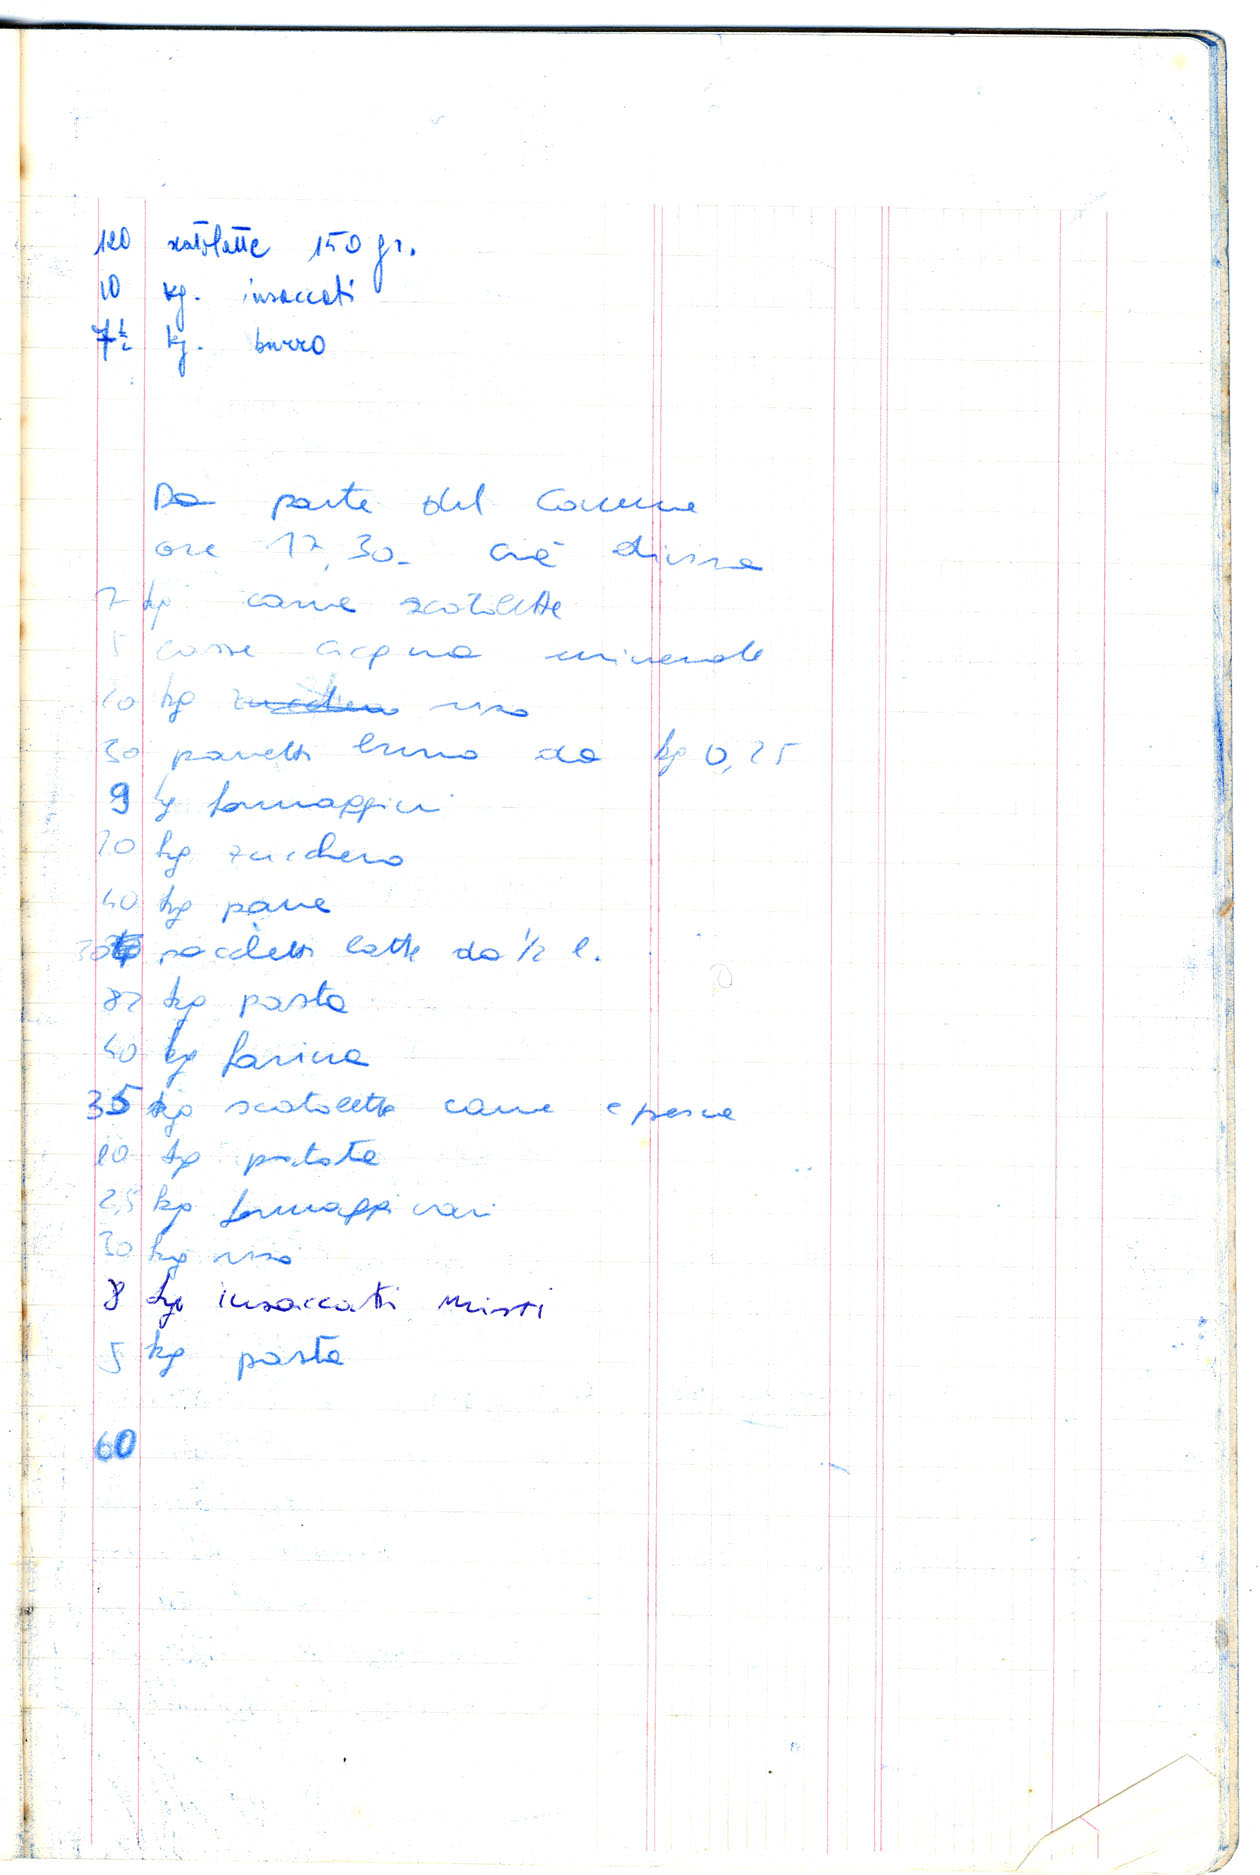 120 scatolette 150 gr.
10 kg. insaccati
7 1/2 kg. burro
Da parte del Comune
ore 17,30 - già divisa
7 kg carne scatolette
5 casse acqua minerale
20 kg zucchero riso
30 panetti burro da kg 0,25
9 kg formaggini
20 kg zucchero
40 kg pane
30 pacchetti latte da 1/2 l.
82 kg pasta
40 kg farina
35 kg scatolette carne e pesce
10 kg patate
2,5 kg formaggi vari
30 kg riso
8 kg insaccati misti
5 kg pasta
60